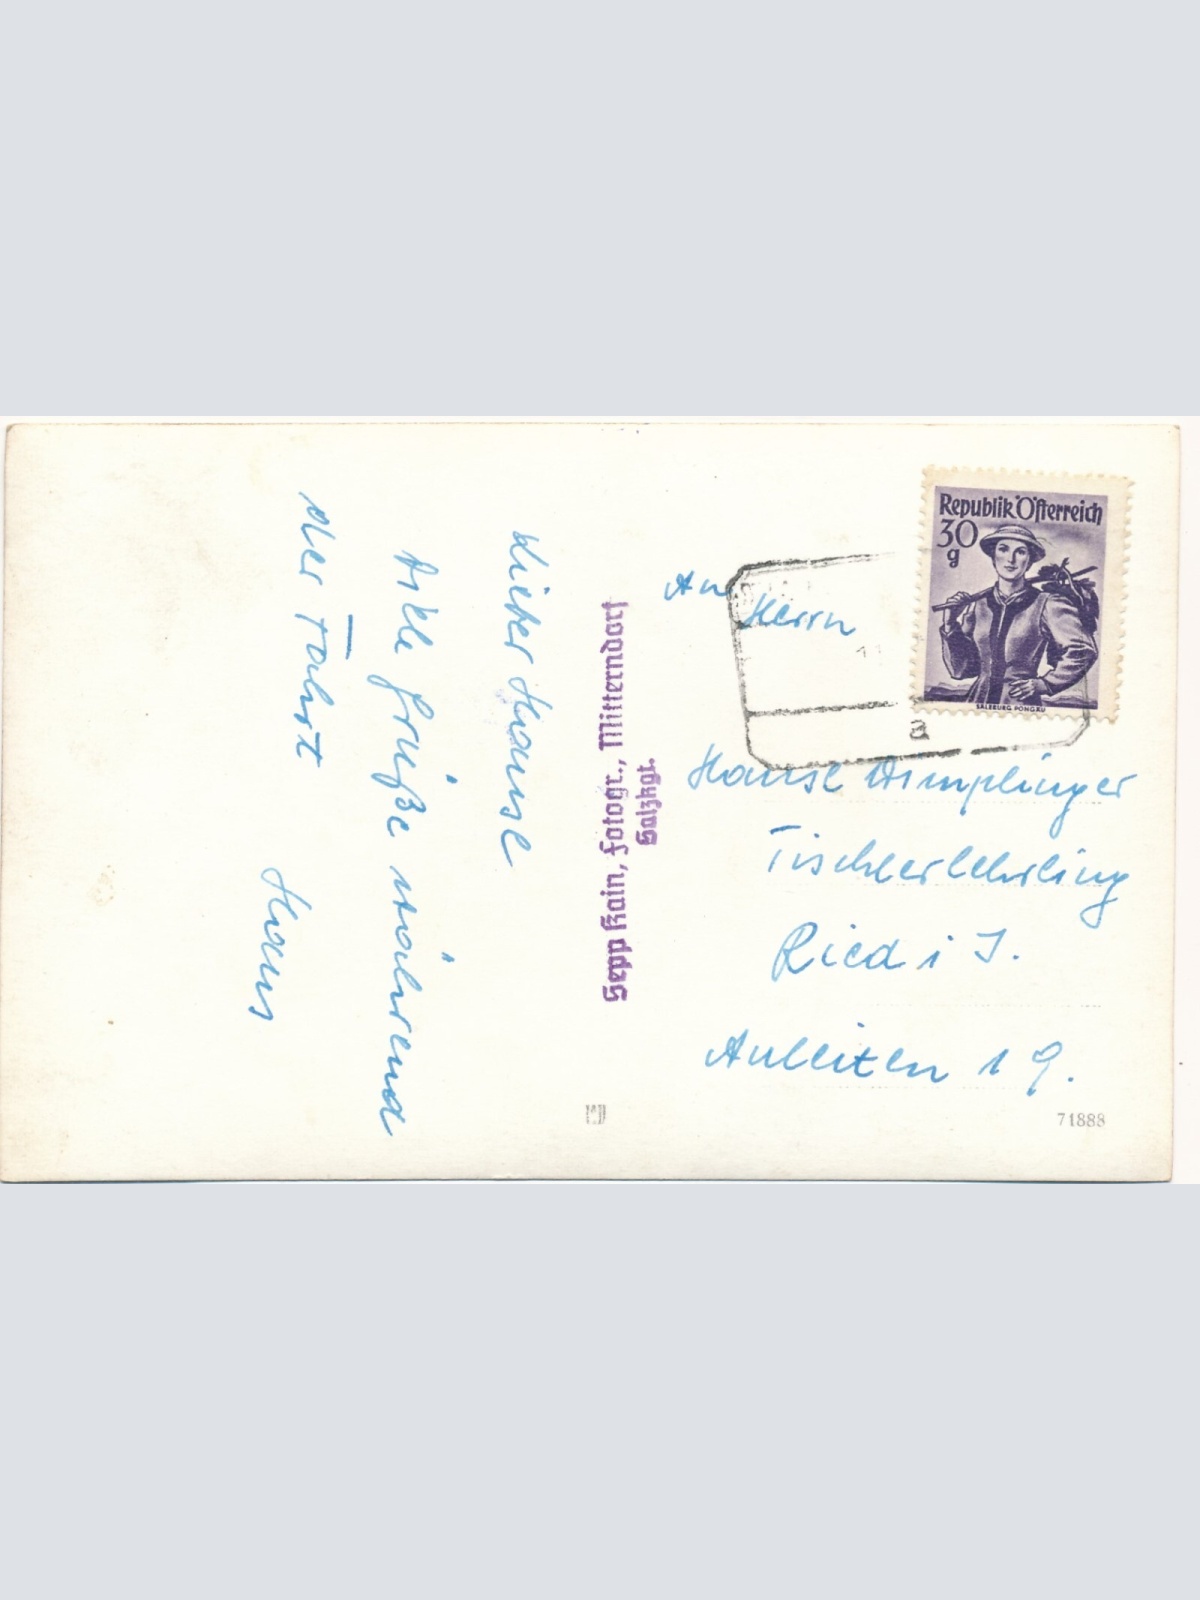 Lieber Hansl
Alle Grüße während
der Fahrt
Hans
Sepp Kain, Fotogr., Mitterndorf
Salzkgt.
Republik Österreich
30
g
SALZBURG PONGAU
An
Herrn
a
Hansl Aimplinger
Tischlerlehrling
Ried i I.
Auleiten 19.
71888